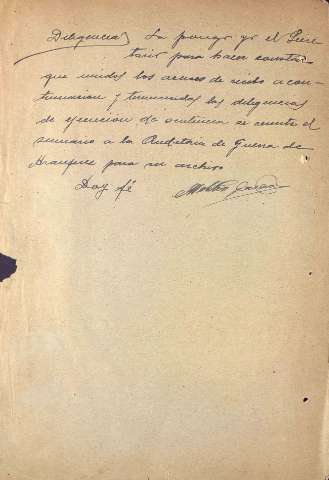 Diligencia) La pongo yo el Secre
tario para hacer constar
que unidos los acuses de recibo a con-
tinuacion y terminadas las diligencias
de ejecucion de sentencia se remite el
sumario a la Auditoria de Guerra de
Aranjuez para su archivo
Doy fé